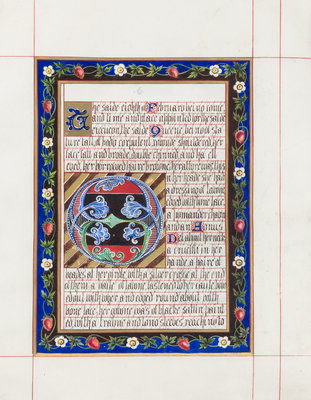 The saide eighth of February being come,
and time and place appointed for the saide
execucon, the saide Queene, being of sta
ture tall, of body corpulent, rounde shouldred, her
face fatt and broade, double chinned and hasell
eyed, her borrowed haire broune, her attyre was this.
On her head she had
a dressing of lawne
edged with bone lace,
a pomander chayne
and an Agnus
Dei about her neck,
a crucifix in her
hande, a paire of
beades at her girdle with a silver crosse at the end
of them, a vaile of lawne fastened to her caule bow
ed out with wyer and edged round about with
bone lace. her gowne was of blacke sattin paint
ed, with a trayne and long sleeves reaching to